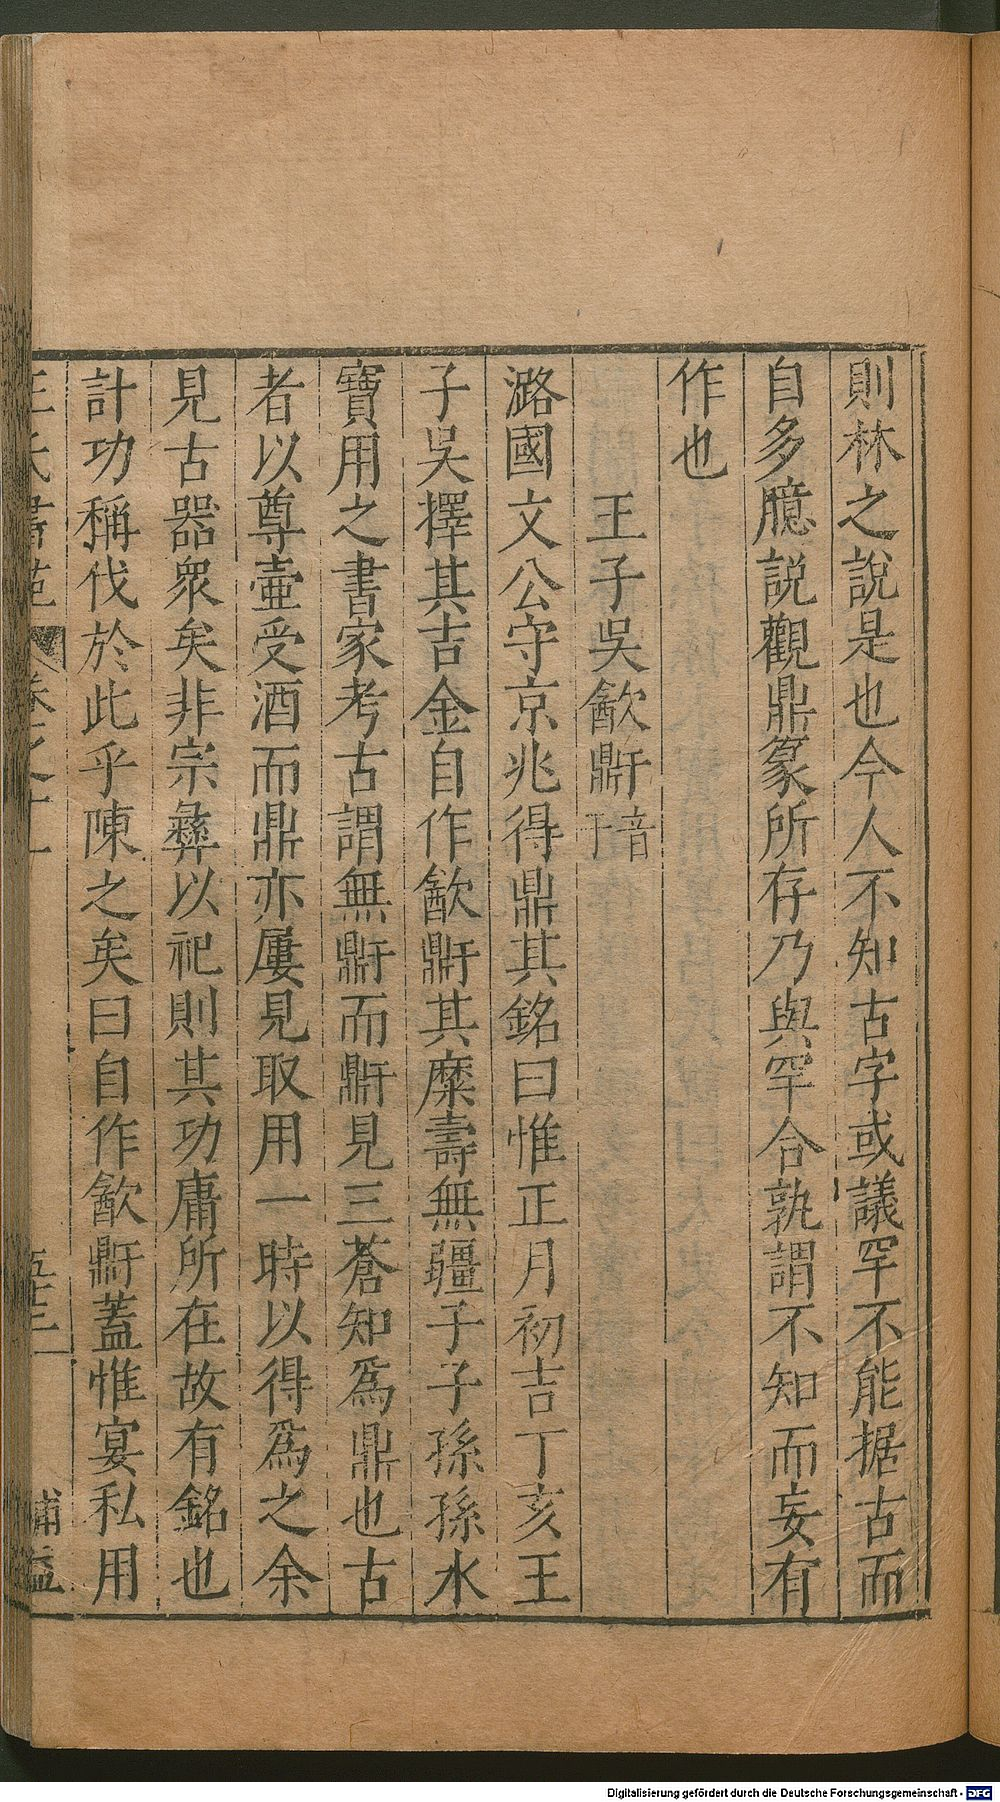 則林之說是也今人不知古字或議罕不能据古而
自多臆説觀鼎篆所存乃與罕合孰謂不知而妄有
作也
王子吳飲鼾音干
潞國文公守京兆得鼎其銘曰惟正月初吉丁亥王
子吳擇其吉金自作飲鼾其麋壽無疆子子孫孫水
寶用之書家考古謂無鼾而鼾見三蒼知為鼎也古
者以尊壷受酒而鼎亦屢見取用一時以得為之余
見古器衆矣非宗彝以祀則其功庸所在故有銘也
計功稱伐於此乎陳之矣曰自作飲鼾蓋惟宴私用
王氏書苑 卷之十一 補益
Digitalisierung gefördert durch die Deutsche Forschungsgemeinschaft - DFG